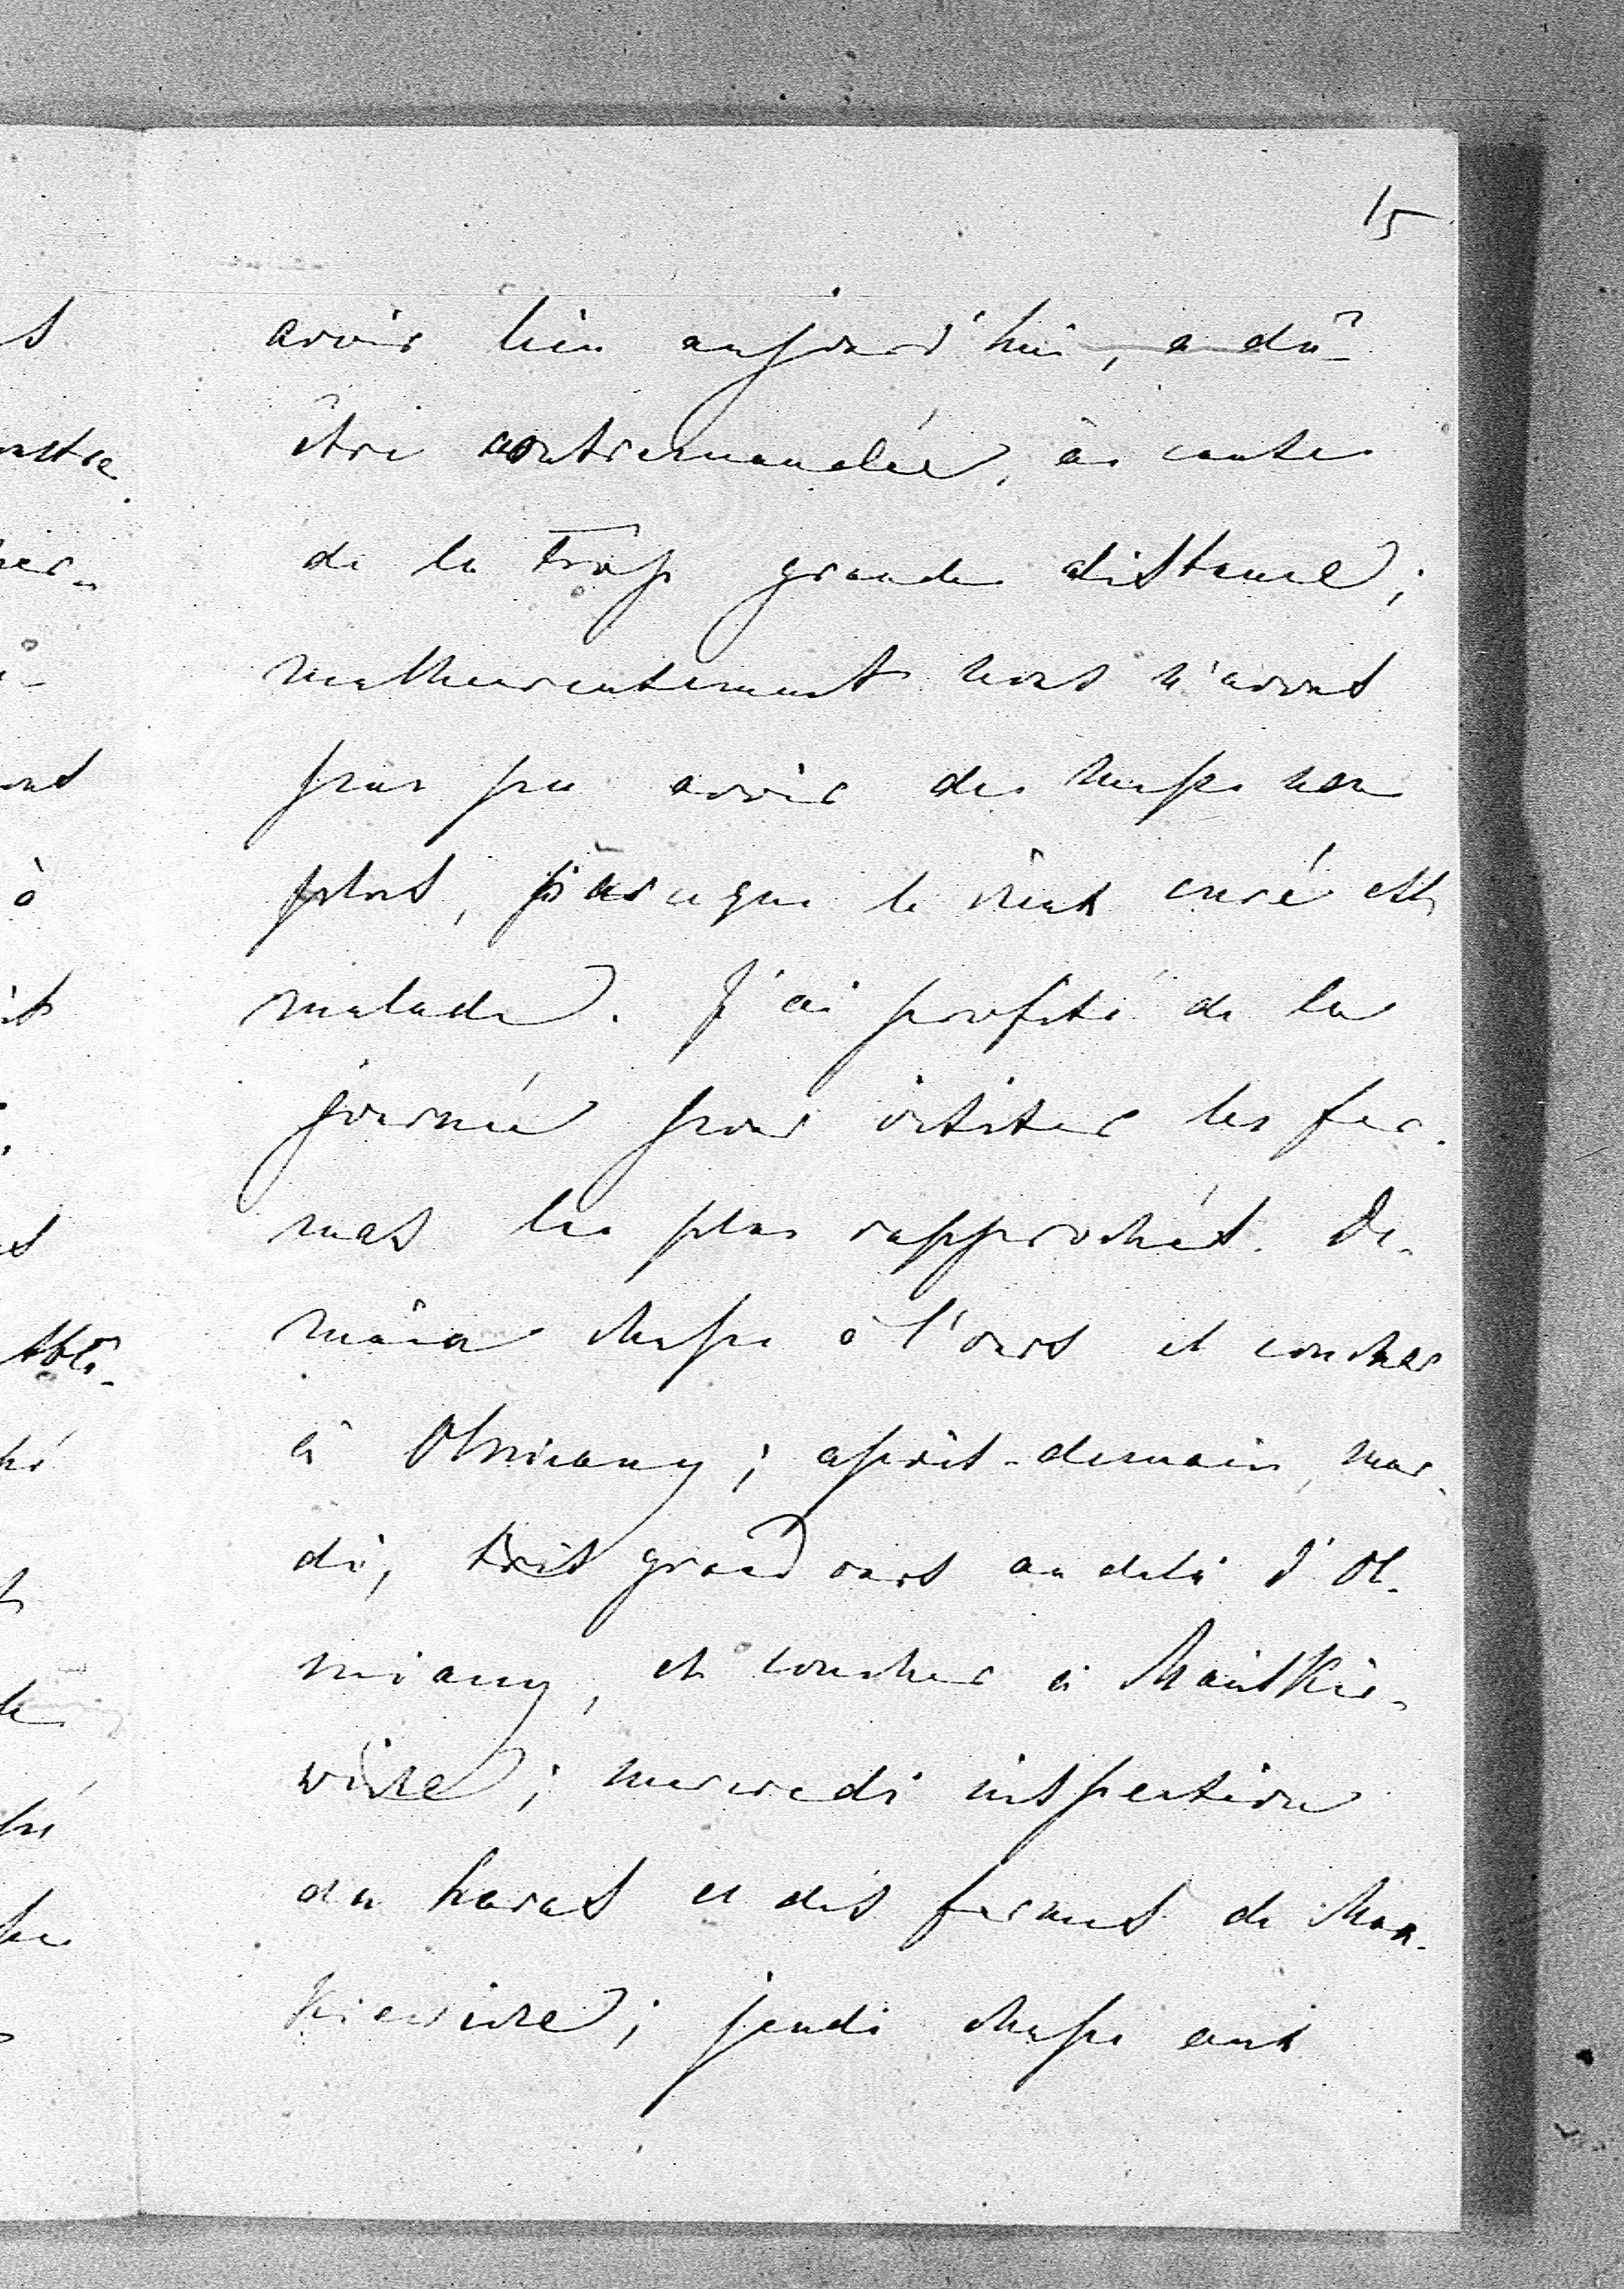 15
avoir lieu aujourd'hui, a dû
être contremandée, à cause
de la trop grande distance;
malheureusement nous n'avons
pas pu avoir de messe non
plus, parceque le vieux curé est
malade. J'ai profité de la
journée pour visiter les fer-
mes les plus rapprochés. De-
main chasse à l'ours et coucher
à Olmiany; après-demain, mar-
di, très grand ours au delà d'Ol-
miany, et coucher à Mańkie-
wicze; mercredi inspection
du haras et des fermes de Man-
kiewicze; jeudi chasse aux